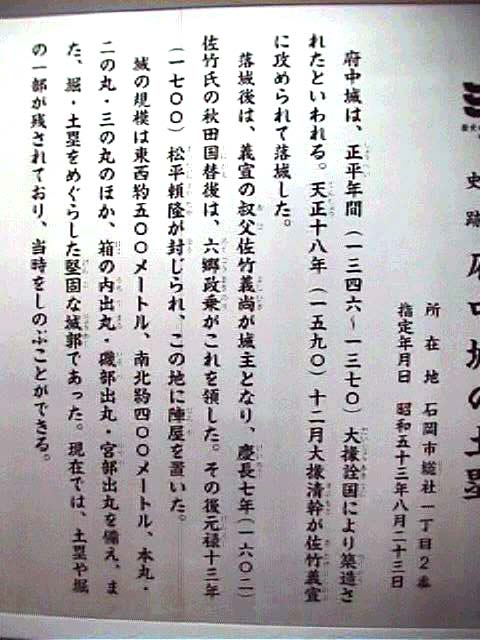 史跡 府中城の土塁
所在地 石岡市総社一丁目2番
指定年月日 昭和五十三年八月二十三日
府中城は、正平年間（一三四六～一三七〇）大掾詮国により築造さ
れたといわれる。天正十八年（一五九〇）十二月大掾清幹が佐竹義宣
に攻められて落城した。
落城後は、義宣の叔父佐竹義尚が城主となり、慶長七年（一六〇二）
佐竹氏の秋田国替後は、六郷政乗がこれを領した。その後元禄十三年
（一七〇〇）松平頼隆が封じられ、この地に陣屋を置いた。
城の規模は東西約五〇〇メートル、南北約四〇〇メートル、本丸・
二の丸・三の丸のほか、箱の内出丸・磯部出丸・宮部出丸を備え、ま
た、堀・土塁をめぐらした堅固な城郭であった。現在では、土塁や堀
の一部が残されており、当時をしのぶことができる。